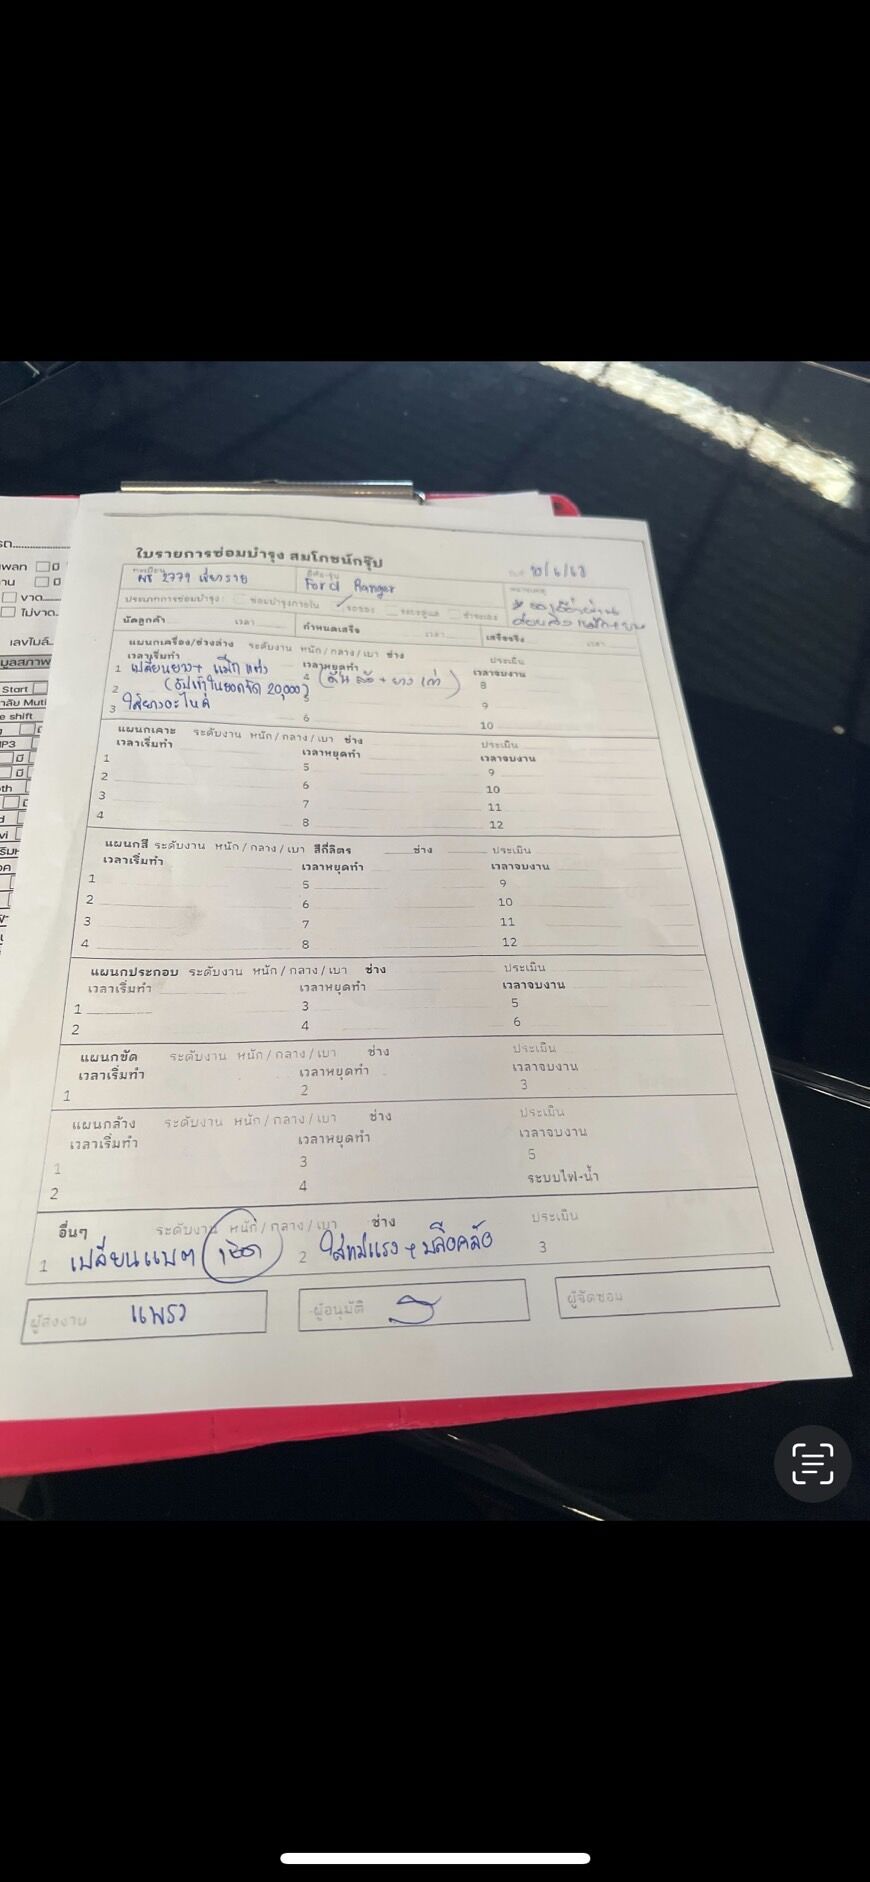 ใบรายการซ่อมบำรุง สมโภชนักรุ๊ป
ทะเบียน
2779 เชียงราย
ยี่ห้อ-รุ่น
Ford Ranger
วันที่
หมายเหตุ
ประเภทการซ่อมบำรุง ซ่อมบำรุงภายใน
นัดลูกค้า เวลา กำหนดเสร็จ เวลา เสร็จจริง เวลา
แผนกเครื่อง/ช่วงล่าง ระดับงาน หนัก / กลาง / เบา ช่าง ประเมิน
เวลาเริ่มทำ เวลาหยุดทำ เวลาจบงาน
1 เปลี่ยนยาง + แม็ก 4 8
2 20,000) 5 9
3 ใส่ยางอะไหล่ 6 10
แผนกเคาะ ระดับงาน หนัก / กลาง / เบา ช่าง ประเมิน
เวลาเริ่มทำ เวลาหยุดทำ เวลาจบงาน
1 5 9
2 6 10
3 7 11
4 8 12
แผนกสี ระดับงาน หนัก / กลาง / เบา สีกี่ลิตร ช่าง ประเมิน
เวลาเริ่มทำ เวลาหยุดทำ เวลาจบงาน
1 5 9
2 6 10
3 7 11
4 8 12
แผนกประกอบ ระดับงาน หนัก / กลาง / เบา ช่าง ประเมิน
เวลาเริ่มทำ เวลาหยุดทำ เวลาจบงาน
1 3 5
2 4 6
แผนกขัด ระดับงาน หนัก / กลาง / เบา ช่าง ประเมิน
เวลาเริ่มทำ เวลาหยุดทำ เวลาจบงาน
1 2 3
แผนกล้าง ระดับงาน หนัก / กลาง / เบา ช่าง ประเมิน
เวลาเริ่มทำ เวลาหยุดทำ เวลาจบงาน
1 3 5
2 4 ระบบไฟ-น้ำ
อื่นๆ ระดับงาน หนัก / กลาง / เบา ช่าง ประเมิน
1 เปลี่ยนแบต 2 ใส่แม่แรง + บล็อคล้อ 3
ผู้สั่งงาน แพรว ผู้อนุมัติ ผู้จัดซ่อม
เพลท มี
ขาด
ไม่ขาด
เลขไมล์
มูลสภาพ
Start
Muti
shift
P3
มี